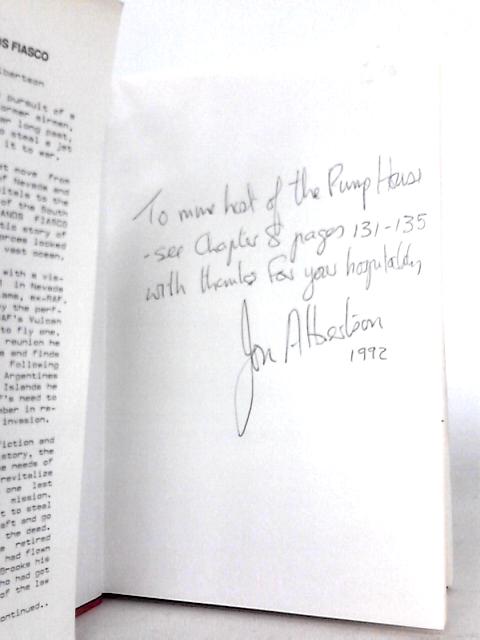 OS FIASCO
ibertson
pursuit of a
ormer airmen,
er long past,
o steal a jet
it to war.
t move from
of Nevada and
itals to the
of the South
ANOS FIASCO
tic story of
orces locked
vast ocean.
with a vie-
in Nevada
ams, ex-RAF.
y the perf-
AF's Vulcan
to fly one.
reunion he
s and finds
Following
Argentines
Islands he
F's need to
mber in re-
invasion.
iction and
story, the
e needs of
revitalize
one last
mission.
t to steal
aft and go
the deed.
e retired
had flown
Brooks his
ho had got
of the law
ontinued..
To mine host of the Pump House
- see Chapter 8 pages 131-135
with thanks for your hospitality
Jon Albertson
1992